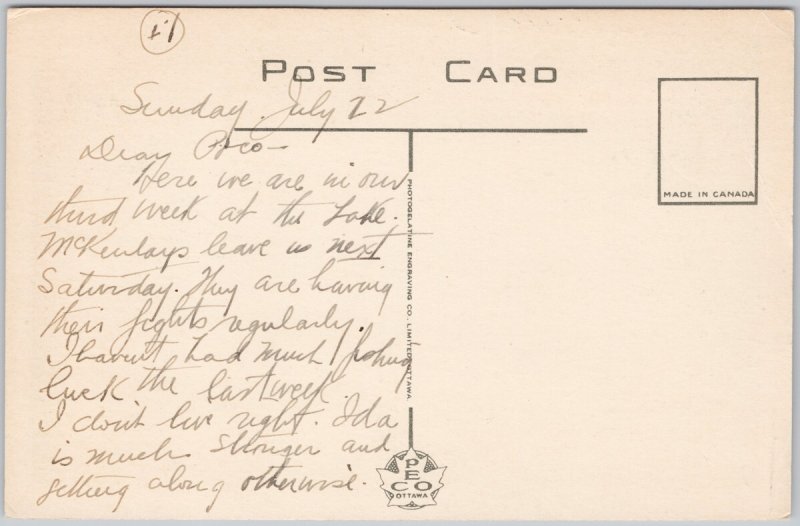 POST CARD
Sunday. July 22
Dear Poco—
Here we are in our
third week at the Lake.
McKenlays leave us next
Saturday. They are having
their fights regularly.
I havent had much fishing
luck the last week.
I dont live right. Ida
is much stronger and
getting along otherwise.
PHOTOGELATINE ENGRAVING CO., LIMITED, OTTAWA.
MADE IN CANADA
PECO
OTTAWA